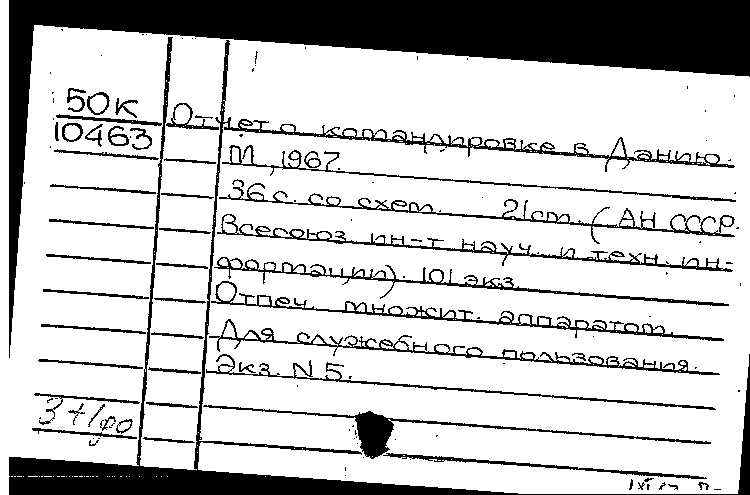 50К
10463
Отчет о командировке в Данию.
М., 1967.
36 с. со схем. 21 cm. (АН СССР.
Всесоюз. ин-т науч. и техн. ин-
формации). 101 экз.
Отпеч. множит. аппаратом.
Для служебного пользования.
Экз. N 5.